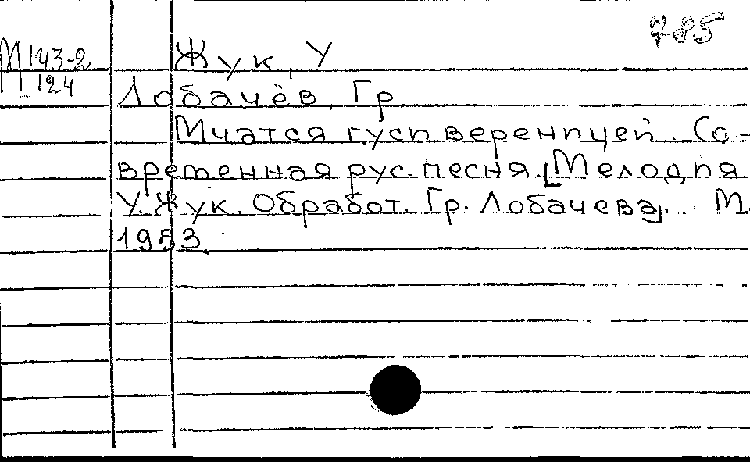 785
М 143-2 Жук, У
I 124
Лобачёв, Гр
Мчатся гуси вереницей. Со-
временная рус. песня. [Мелодия
У. Жук. Обработ. Гр. Лобачева]. М.
1953